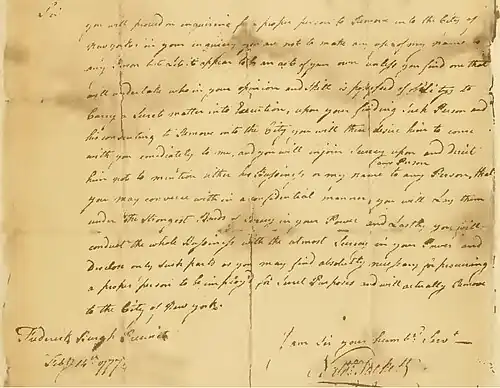 Sir
you will proceed in inquiring for a proper person to Remove into the City of
New york in your inquiry you are not to make an use of my name to
any Person but Let it appear to be an act of your own unless you find one that
will undertake who in your opinion and Skill is possessed of to
Carry a Secret matter into Execution, upon your finding Such Person and
his consenting to Remove into the City you will then desire him to come
with you imediately to me, and you will injoin Secrecy upon and
him not to mention either his Bussiness or my name to any Person, that
any Person
you may converse with in a confidential manner, you will Lay them
under the Strongest Bonds of Secrecy in your Power and Lastly, you will
conduct the whole Bussiness with the utmost Secrecy in your Power and
Disclose only Such parts as you may find absolutly necessary for procuring
a proper person to be imploy'd for Secret Purposes and will actually Remove
to the City of New york.
I am Sir your humbl. Serv.
Feb. 14th 1777